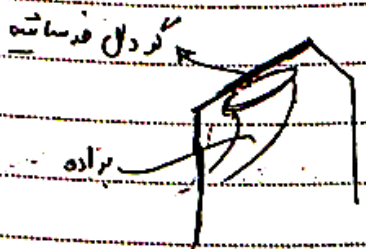 گودال فرسایش
براده